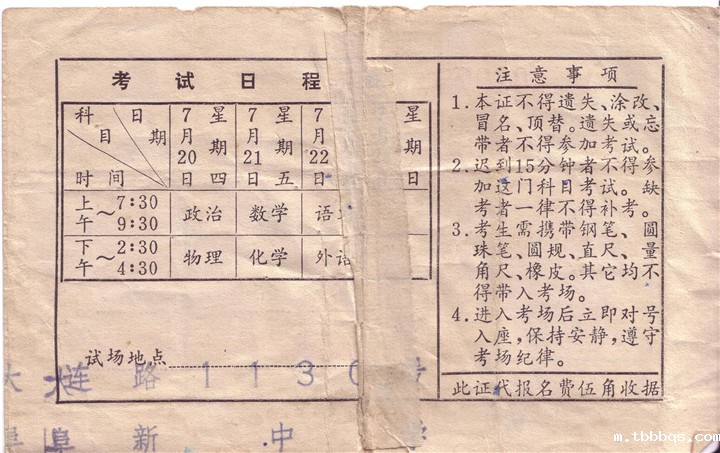 考试日程
科目 日期 时间 7月20日 星期四 7月21日 星期五 7月22 星期日
上午~7:30 9:30 政治 数学 语
下午~2:30 4:30 物理 化学 外语
试场地点
大连路1130号
阜新中
注意事项
1.本证不得遗失、涂改、
冒名、顶替。遗失或忘
带者不得参加考试。
2.迟到15分钟者不得参
加这门科目考试。缺
考者一律不得补考。
3.考生需携带钢笔、圆
珠笔、圆规、直尺、量
角尺、橡皮。其它均不
得带入考场。
4.进入考场后立即对号
入座,保持安静,遵守
考场纪律。
此证代报名费伍角收据
m.tbbbqs.com